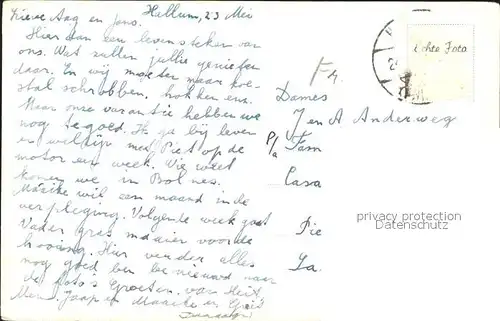 Hallum, 23 Mei
Lieve Aag en Jans.
Hier dan een levensteken van
ons. Wat zullen jullie genieten
daar. En wij moeten maar koe-
stal schrobben. hokken enz.
Maar onze vacantie hebben we
nog tegoed. Ik ga bij leven
en welzijn met Piet op de
motor een week. Wie weet
komen we in Bolnes.
Maaike wil een maand in de
verpleging. Volgende week gaat
Vader gras maaien voor de
hooiing. Hier verder alles
nog goed ben benieuwd naar
de foto's Groeten van Heit
Mem. Jaap en Maaike en
Echte Foto
Dames
J en A Anderweg
p/a Fam
Casa
Pie
La.
privacy protection
Datenschutz